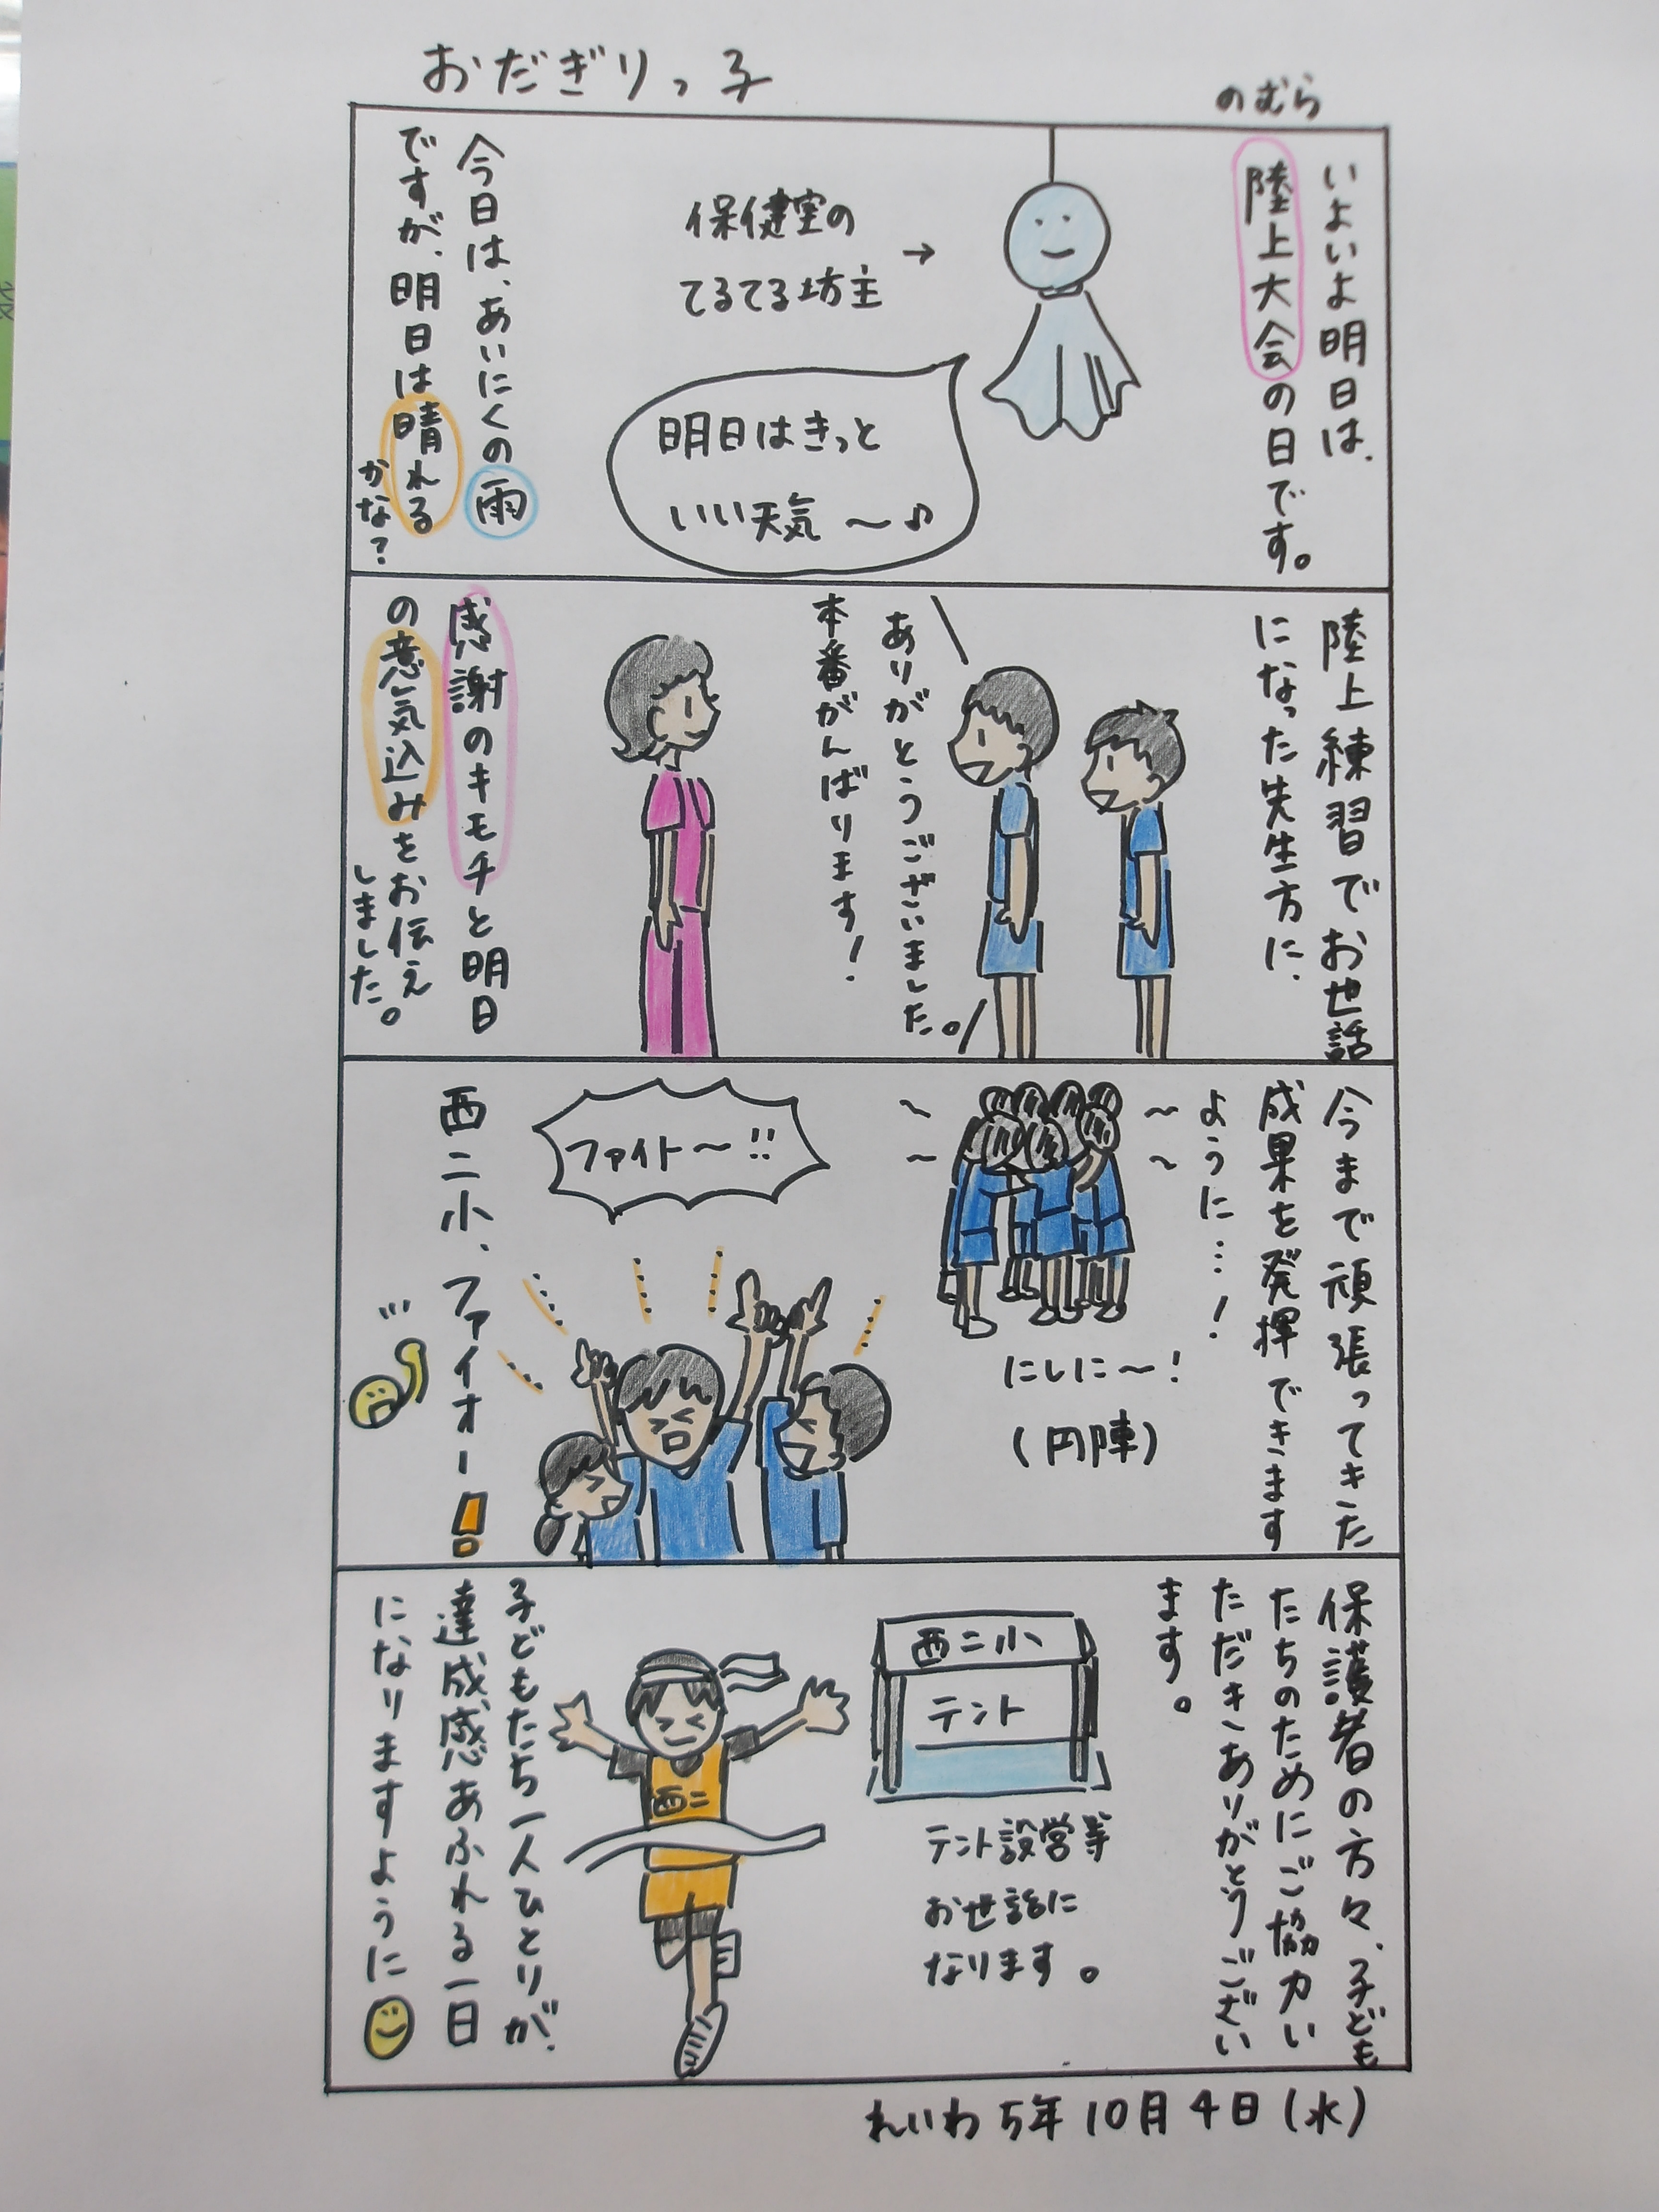 おだぎりっ子
のむら
いよいよ明日は、
陸上大会の日です。
保健室の
てるてる坊主
→
明日はきっと
いい天気～♪
今日は、あいにくの雨
ですが、明日は晴れる
かな？
陸上練習でお世話
になった先生方に、
ありがとうございました。
本番がんばります！
感謝のキモチと明日
の意気込みをお伝え
しました。
今まで頑張ってきた
成果を発揮できます
ように…！
にしに～！
(円陣)
ファイト～!!
西二小、ファイオー！
保護者の方々、子ども
たちのためにご協力い
ただきありがとうござい
ます。
西二小
テント
テント設営等
お世話に
なります。
西二
子どもたち一人ひとりが、
達成感あふれる一日
になりますように
れいわ5年10月4日(水)